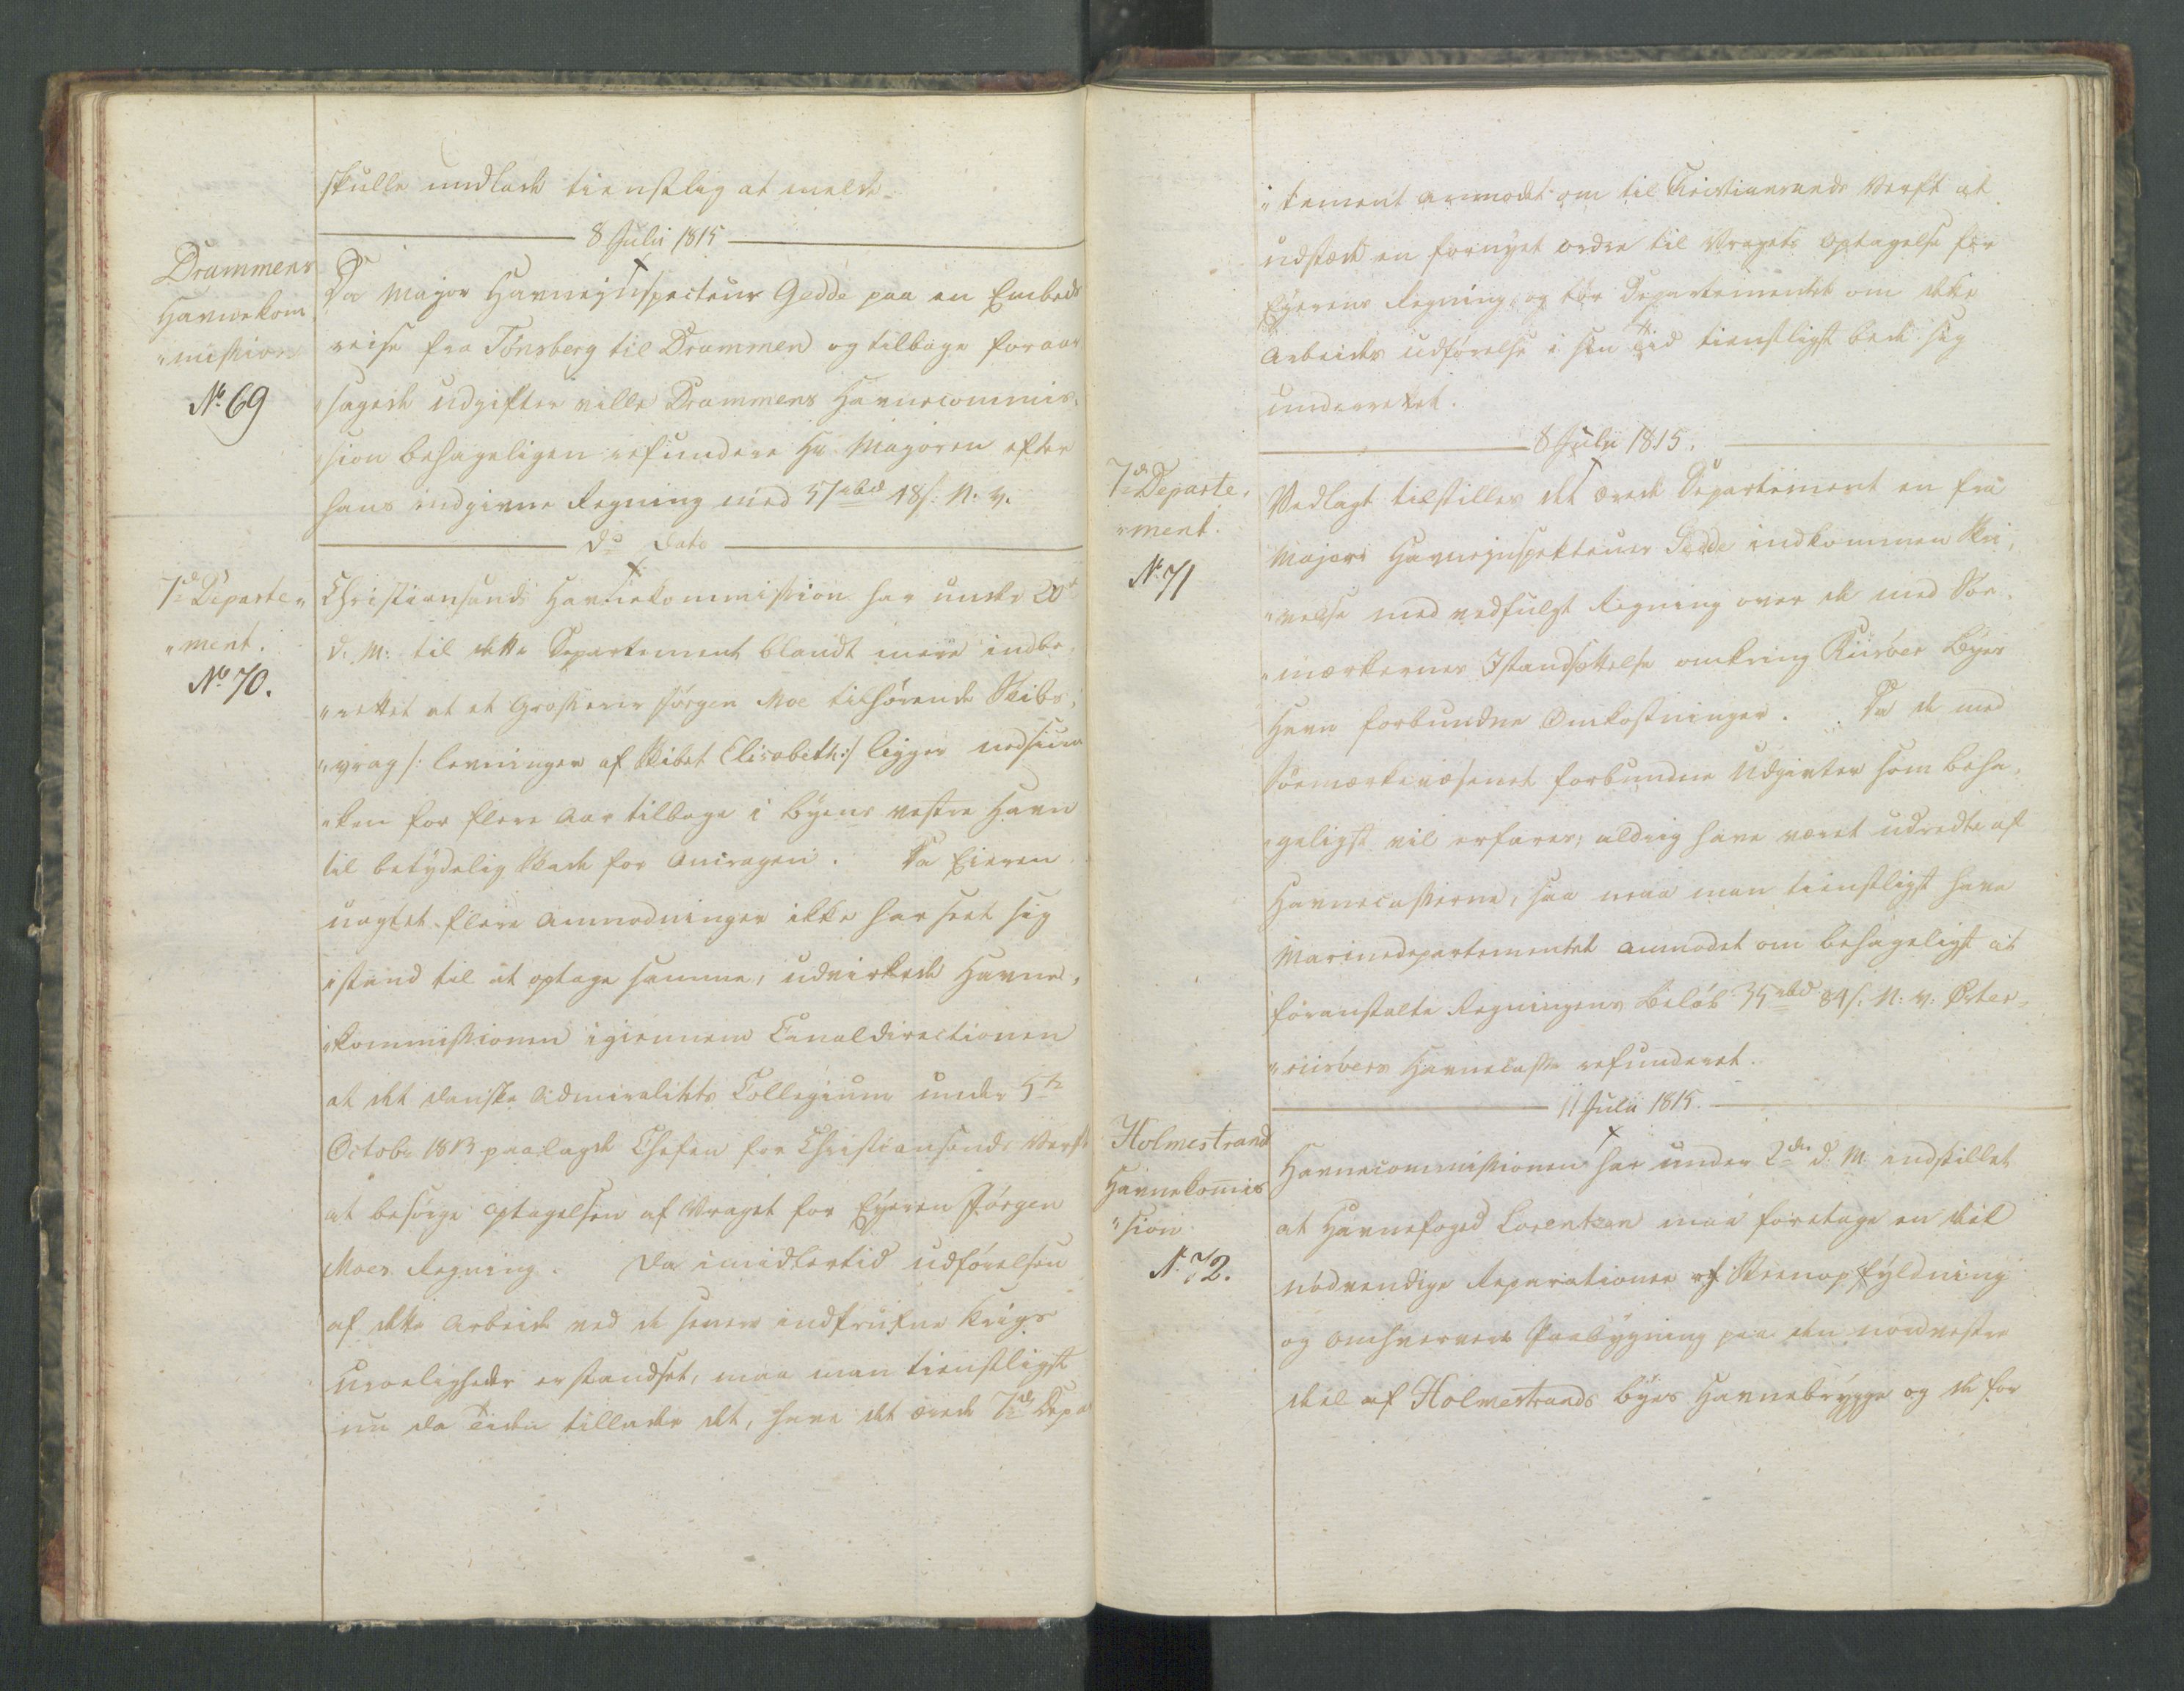 skulle undlade tienstlig at melde.
8 Julii 1815
Drammens
Havnekom
"mission
No 69
Da Major Havneinspecteur Gedde paa en Embeds
reise fra Tønsberg til Drammen og tilbage foraar
sagede udgifter ville Drammens Havnecommis,
sion behageligen refundere Hr Majoren efter
hans indgivne Regning med 57 rbd 18 s: N. v.
do Dato
7de Departe,
"ment.
No 70.
Christiansands Havnekommission har under 20de
d. M: til dette Departement blandt mere indbe,
"rettet at et Grosserer Jørgen Moe tilhørende Skibs,
"vrag /: levninger af Skibet Elisabeth :/ ligger nedsun
"ken for flere Aar tilbage i Byens vestre Havn
til betydelig Skade for Anragen. Da Eieren
uagtet flere Anmodninger ikke har seet sig
istand til at optage samme, udvirkede Havne,
"kommissionen igiennem Canaldirectionen
at det danske Admiralitets Collegium under 5te
Octobr 1813 paalagde Chefen for Christiansands Verft
at besørge Optagelsen af Vraget for Eyeren Jørgen
Moes Regning. Da imidlertid udførelsen
af dette Arbeide ved de senere indtrufne Krigs
uroeligheder er standset, maa man tienstligst
nu da Tiden tillader det, have det ærede 7de Depar
"tement anmodet om til Christiansands Verft at
udstæde en fornyet ordre til Vragets Optagelse for
Eyerens Regning, og tør Departementet om dette
Arbeides udførelse i sin Tid tienstligst bede sig
underrettet.
8 Julii 1815.
7de Departe,
"ment.
No 71
Vedlagt tilstilles det ærede Departement en fra
Major Havneinspekteur Gedde indkommen Skri,
"velse med vedfulgt Regning over de med Søe,
"mærkernes Istandsættelse omkring Riisøer Byes
Havn forbundne Omkostninger. Da de med
Søemærkevæsenet forbundne Udgivter som beha,
"geligst vil erfares, aldrig have været udredte af
Havnecasserne, saa maa man tienstligst have
Marinedepartementet anmodet om behageligst at
foranstalte Regningens Beløb 35 rbd 84 s. N: v: Øster,
"riisøers Havnecasse refunderet.
11 Julii 1815.
Holmestrand
Havnekomis
"sion
N. 72.
Havnecommissionen har under 2den d: M: indstillet
at Havnefoged Lorentzen maa foretage en deel
nødvendige Reparationer af Steenopfyldning
og Paabygning paa den nordvestre
deel af Holmestrands byes Havnebrygge og de for